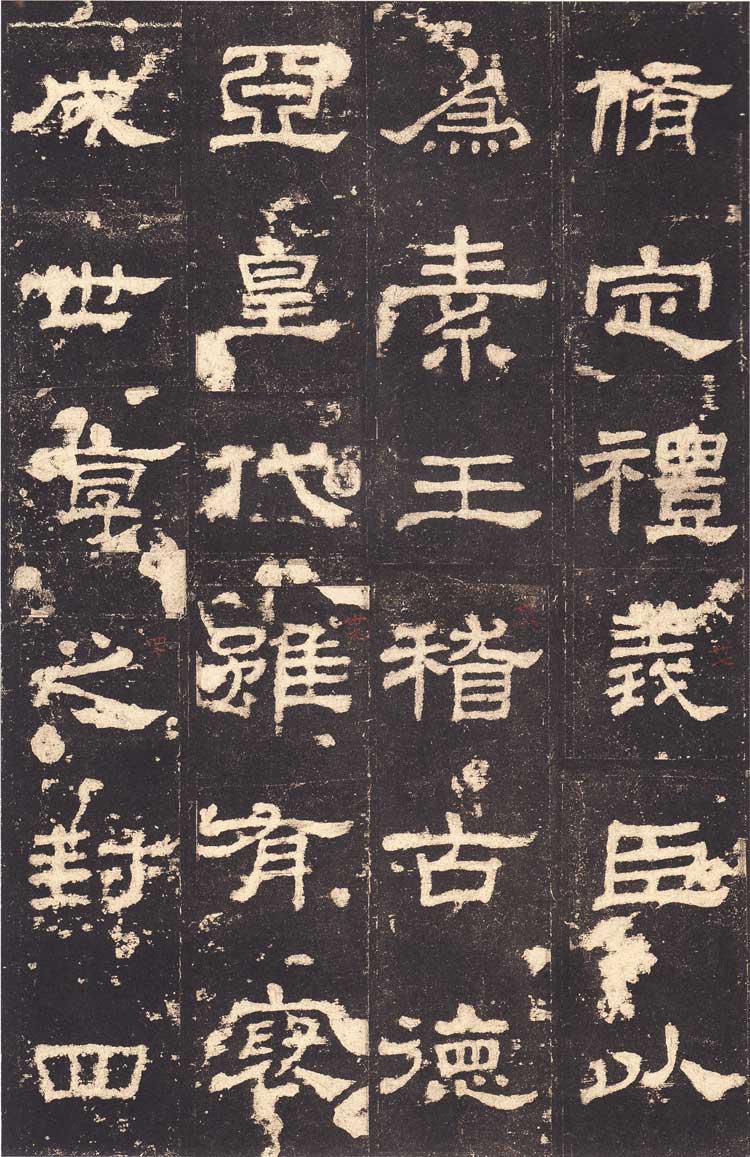 脩定禮義臣以
爲素王稽古德
亞皇代雖有褒
成世享之封四